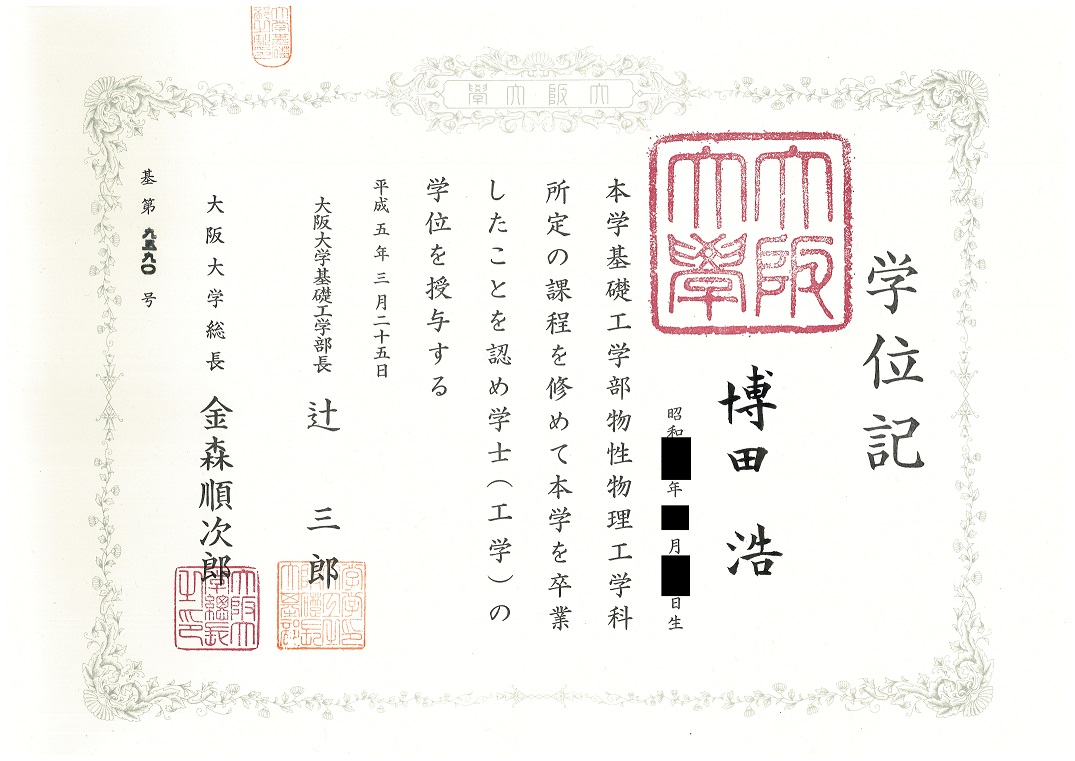 大阪大學
大阪大學
学位記
博田 浩
昭和 年 月 日生
本学基礎工学部物性物理工学科
所定の課程を修めて本学を卒業
したことを認め学士(工学)の
学位を授与する
平成五年三月二十五日
大阪大学基礎工学部長 辻 三郎
大阪大学総長 金森順次郎
大阪大學總長之印
基第九五九〇号